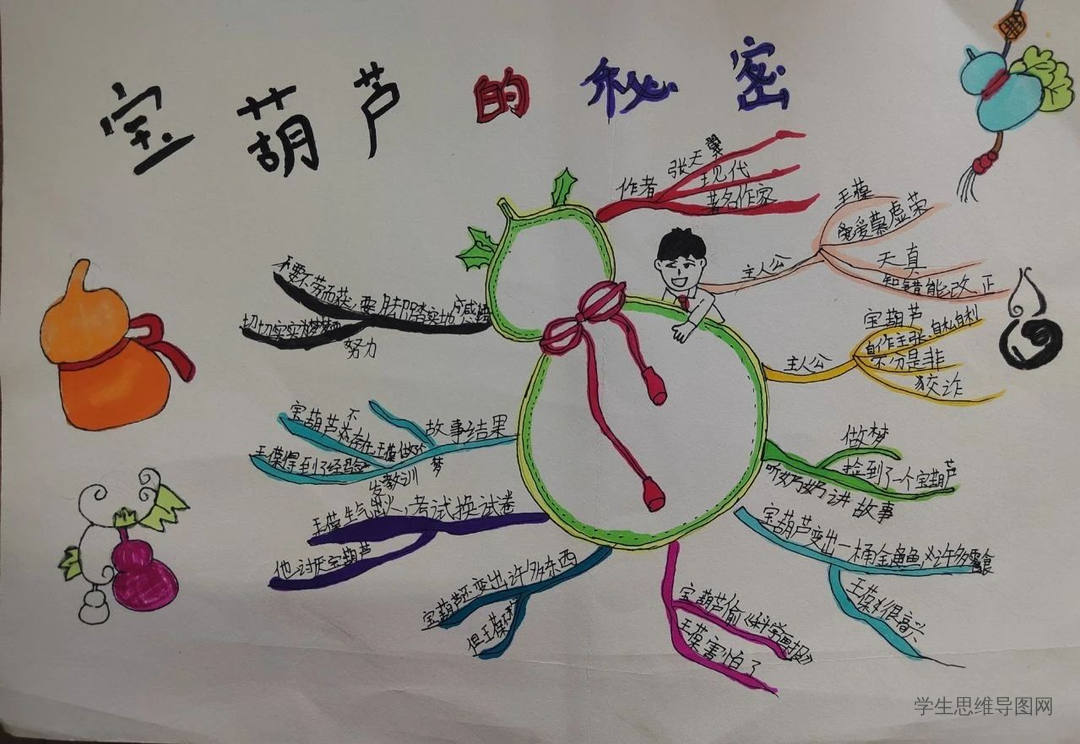 宝葫芦的秘密
作者
张天翼
现代
著名作家
主人公
王葆
爱慕虚荣
天真
知错能改 正
主人公
宝葫芦
自作主张、自私自利
不分是非
狡诈
听奶奶讲故事
做梦
捡到了一个宝葫芦
宝葫芦变出一桶金鱼
许多零食
王葆很高兴
宝葫芦偷《科学画报》
王葆害怕了
宝葫芦还变出许多东西
但王葆
考试换试卷
王葆生气
他讨厌宝葫芦
故事结果
宝葫芦不存在
王葆得到了经验
教训
不要不劳而获,要脚踏实地
切切实实
努力
学生思维导图网